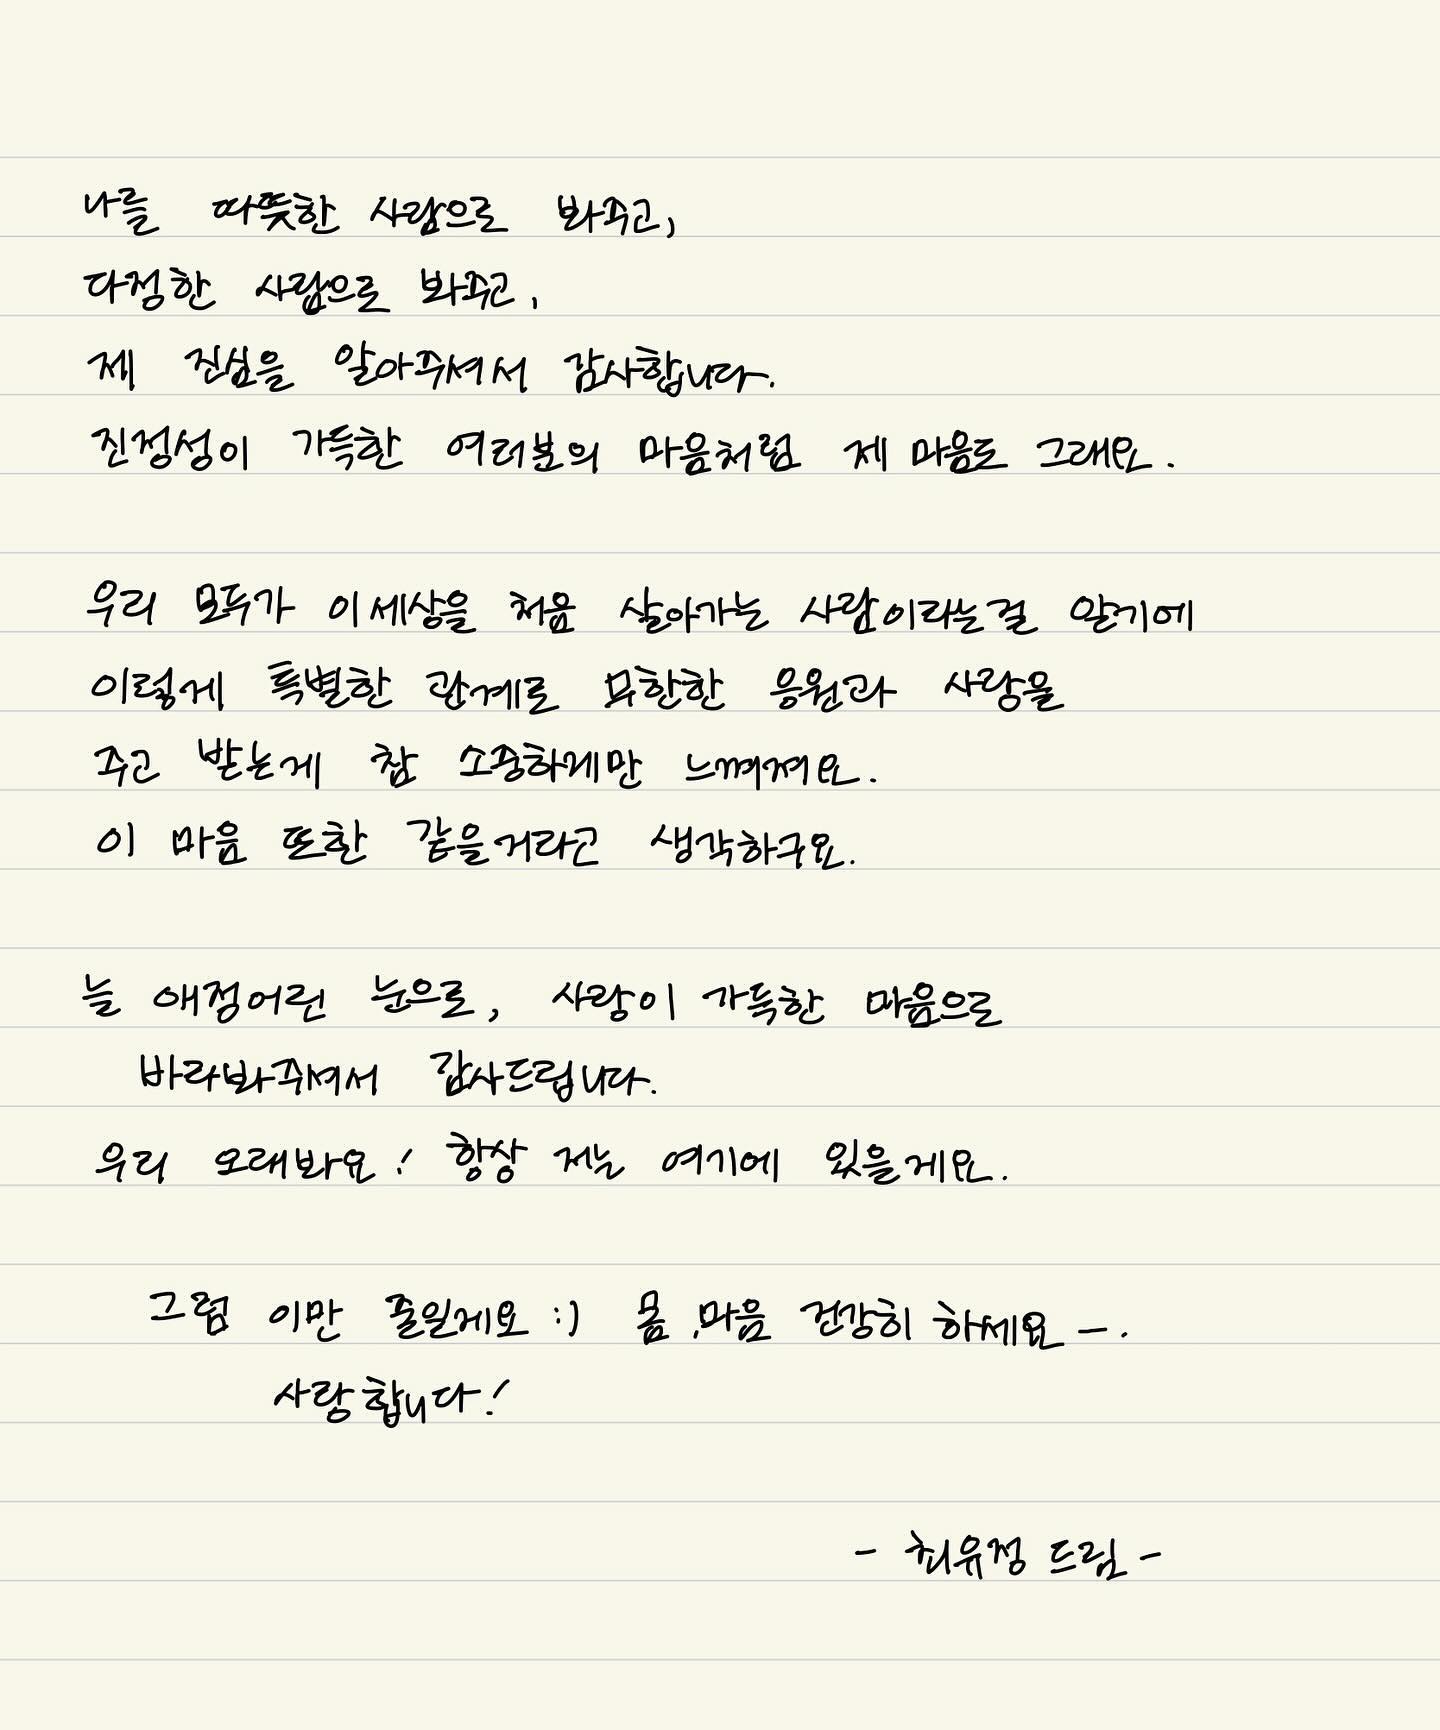 나를 따뜻한 사람으로 봐주고,
다정한 사람으로 봐주고,
제 진심을 알아주셔서 감사합니다.
진정성이 가득한 여러분의 마음처럼 제 마음도 그래요.
우리 모두가 이 세상을 처음 살아가는 사람이라는걸 알기에
이렇게 특별한 관계로 무한한 응원과 사랑을
주고 받는게 참 소중하게만 느껴져요.
이 마음 또한 같을거라고 생각하구요.
늘 애정어린 눈으로, 사랑이 가득한 마음으로
바라봐주셔서 감사드립니다.
우리 오래봐요! 항상 저는 여기에 있을게요.
그럼 이만 줄일게요 :) 몸, 마음 건강히 하세요-.
사랑합니다!
- 최유정 드림 -